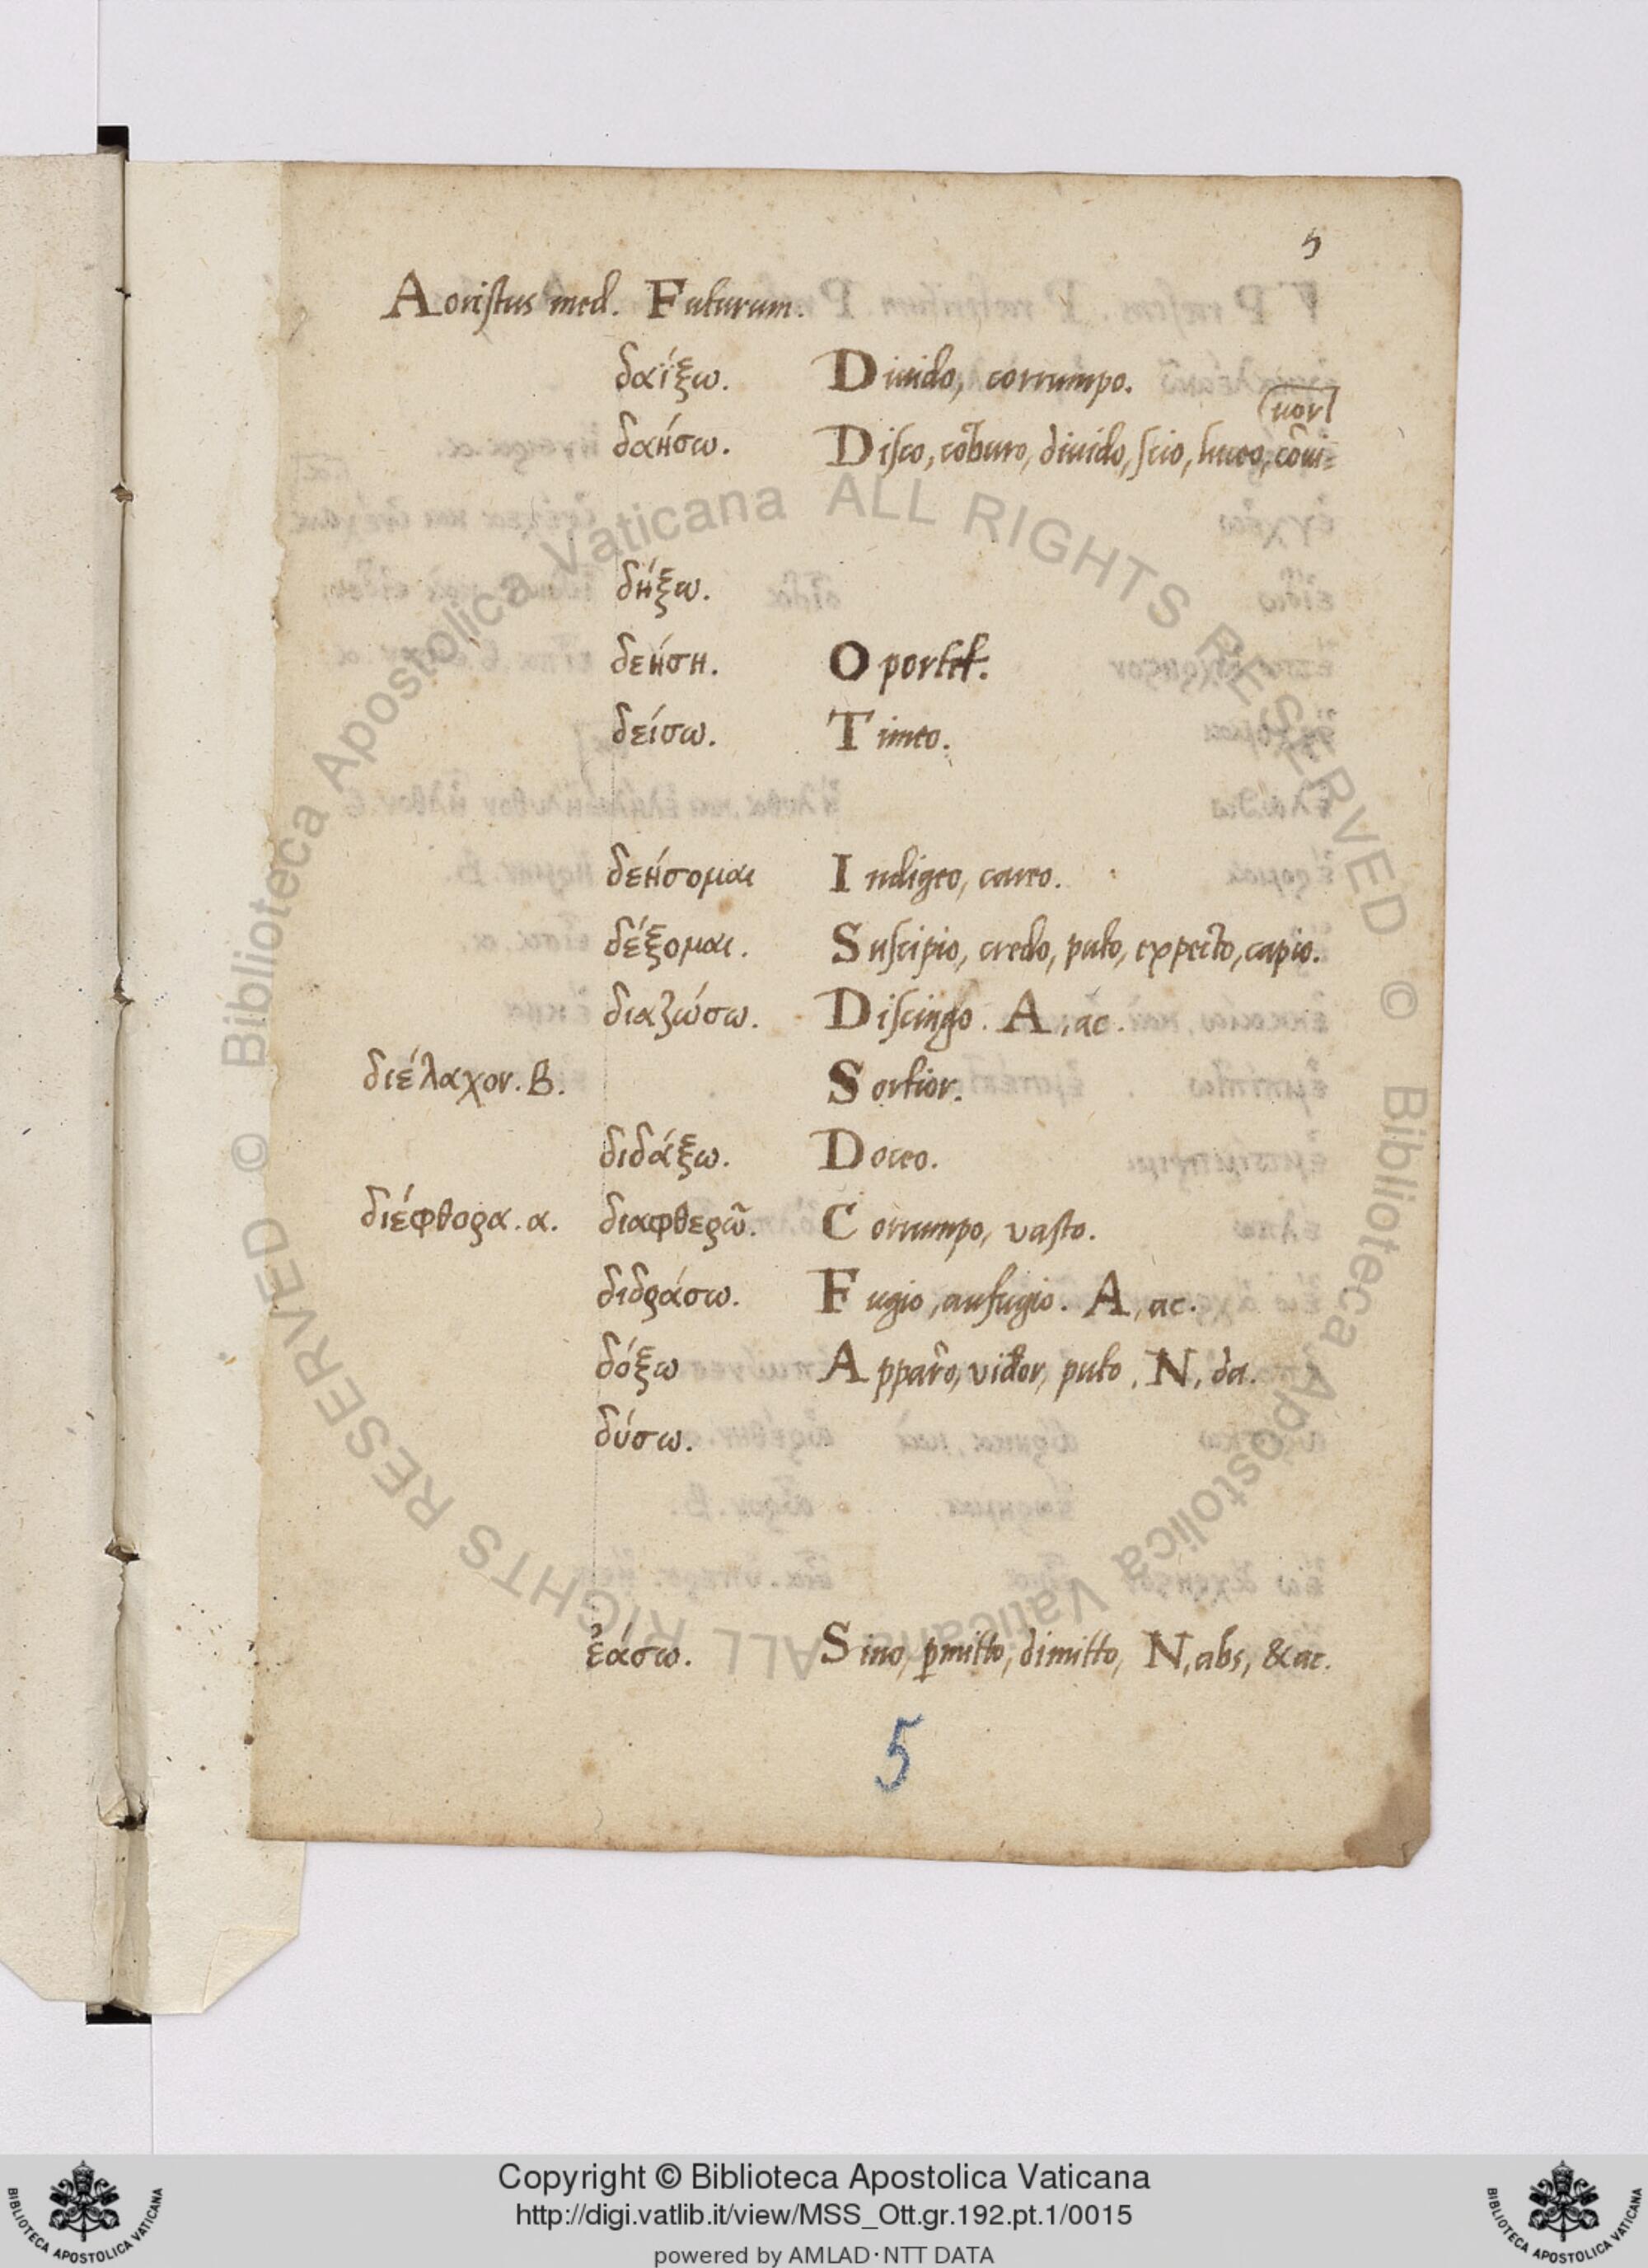 5
Aoristus med. Futurum.
δαΐξω. Diuido, corrumpo.
(uor
δαήσω. Disco, cōburo, diuido, scio, luceo, cōui=
δήξω.
δεήση. Oportet.
δείσω. Timeo.
δεήσομαι Indigeo, careo.
δέξομαι. Suscipio, credo, puto, expecto, capio.
διαζώσω. Discingo. A, ac.
διέλαχον. β. Sortior.
διδάξω. Doceo.
διέφθορα. α. διαφθερῶ. Corrumpo, vasto.
διδράσω. Fugio, aufugio. A, ac.
δόξω Apparēo, videor, puto, N, da.
δύσω.
ἐάσω. Sino, p̱mitto, dimitto, N, abs, & ac.
5
© Biblioteca Apostolica Vaticana ALL RIGHTS RESERVED © Biblioteca Apostolica Vaticana ALL RIGHTS RESERVED
BIBLIOTECA APOSTOLICA VATICANA
Copyright © Biblioteca Apostolica Vaticana
http://digi.vatlib.it/view/MSS_Ott.gr.192.pt.1/0015
powered by AMLAD·NTT DATA
BIBLIOTECA APOSTOLICA VATICANA